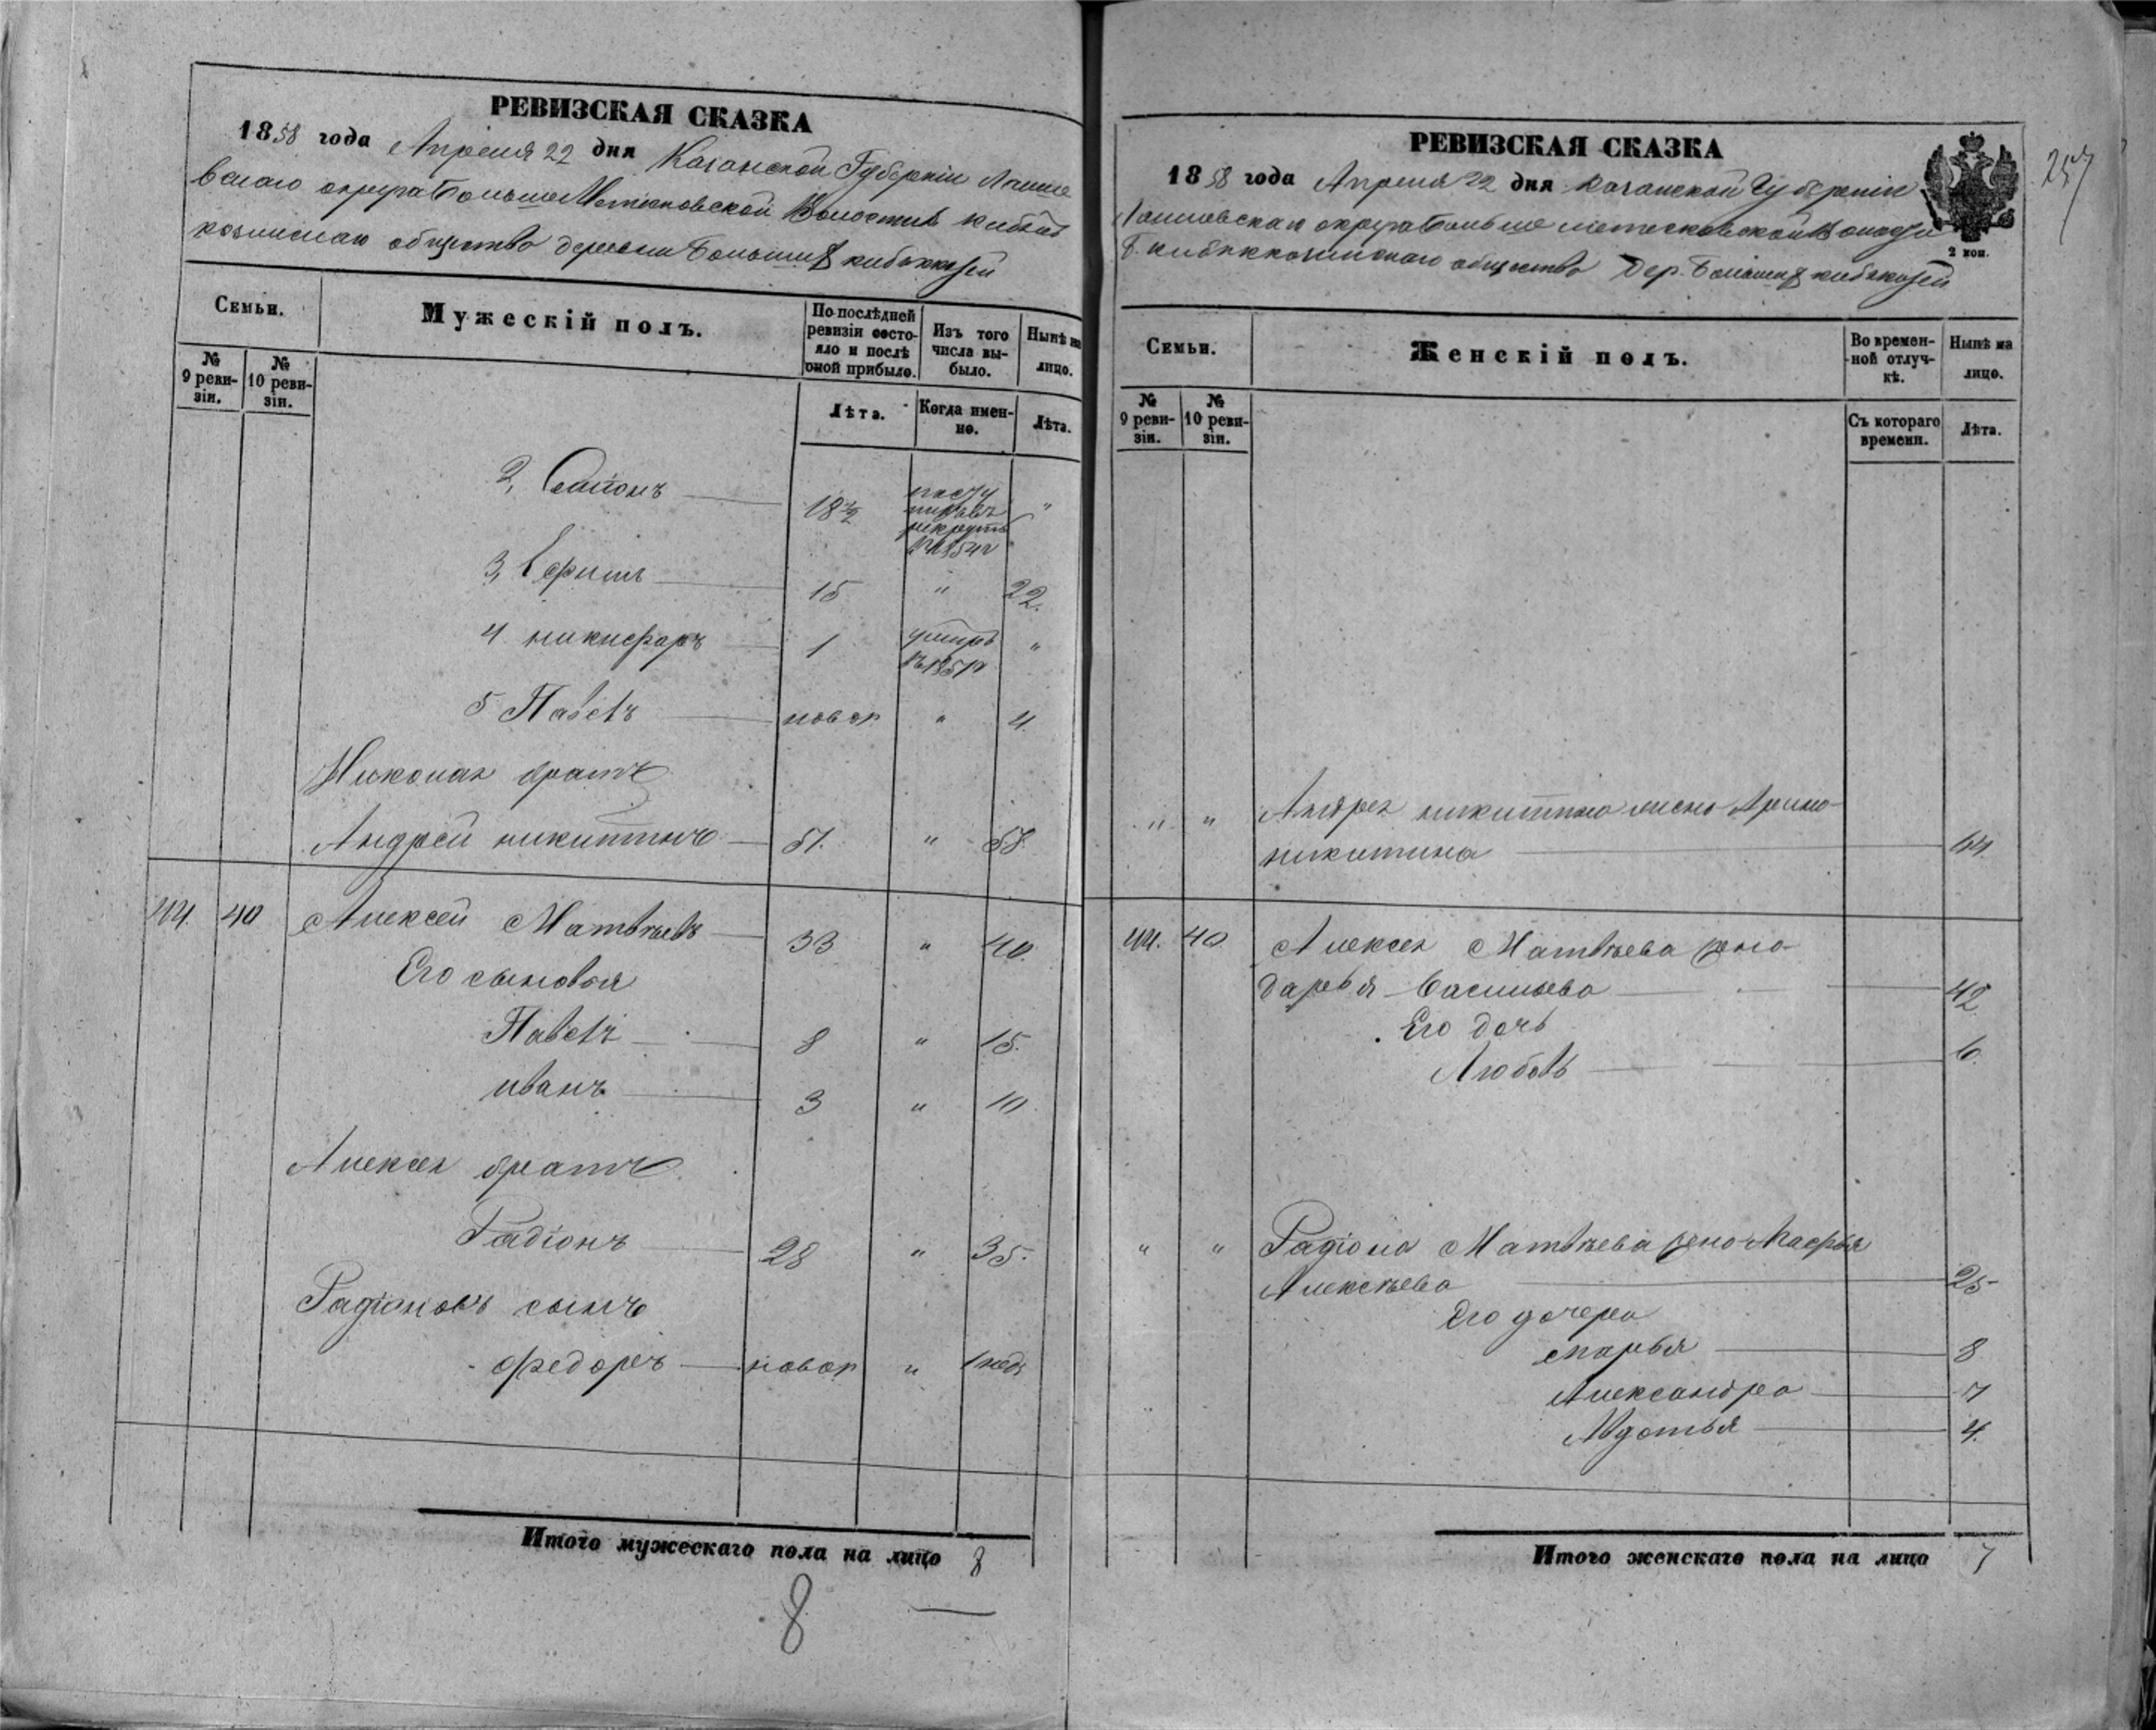 РЕВИЗСКАЯ СКАЗКА
1858 года Апреля 22 дня Казанской Губерніи Лаише
вскаго округа Больше Метесковской Волости
общество деревни Большихъ кибякозей
Семьи.
Мужескій полъ.
По послѣдней ревизіи состояло и послѣ оной прибыло.
Изъ того числа выбыло.
Нынѣ на лицо.
№ 9 ревизіи.
№ 10 ревизіи.
Лѣта.
Когда именно.
Лѣта.
2, 18 1/2 рекруты 1854 г "
3, Ефимъ 15 " 22.
4 никифоръ 1 "
5 Павелъ новор " 4
Николая братъ
Андрей никитинъ 51. " 58
40 Алексей Матвѣевъ 33 " 40.
Его сыновья
Павелъ 8 " 15.
иванъ 3 " 10
Алексея братъ
Радіонъ 28 " 35.
Радіоновъ сынъ
Федоръ новор " 1 недѣ
Итого мужескаго пола на лицо 8
8
РЕВИЗСКАЯ СКАЗКА
1858 года Апреля 22 дня Казанской Губерніи
Лаишевскаго округа Больше метесковской Волости
общество Дер. Большихъ кибякозей
2 коп.
257
Семьи.
Женскій полъ.
Во временной отлучкѣ.
Нынѣ на лицо.
№ 9 ревизіи.
№ 10 ревизіи.
Съ котораго времени.
Лѣта.
" " Андрея никитина жена Арина
никитина 44.
40 Алексея Матвѣева жена
дарья Васильева 42
Его дочь
Любовь 6
" " Радіона Матвѣева жена Марфа
Алексѣева 25
Его дочери
марья 8
Александра 7
Авдотья 4.
Итого женскаго пола на лицо 7